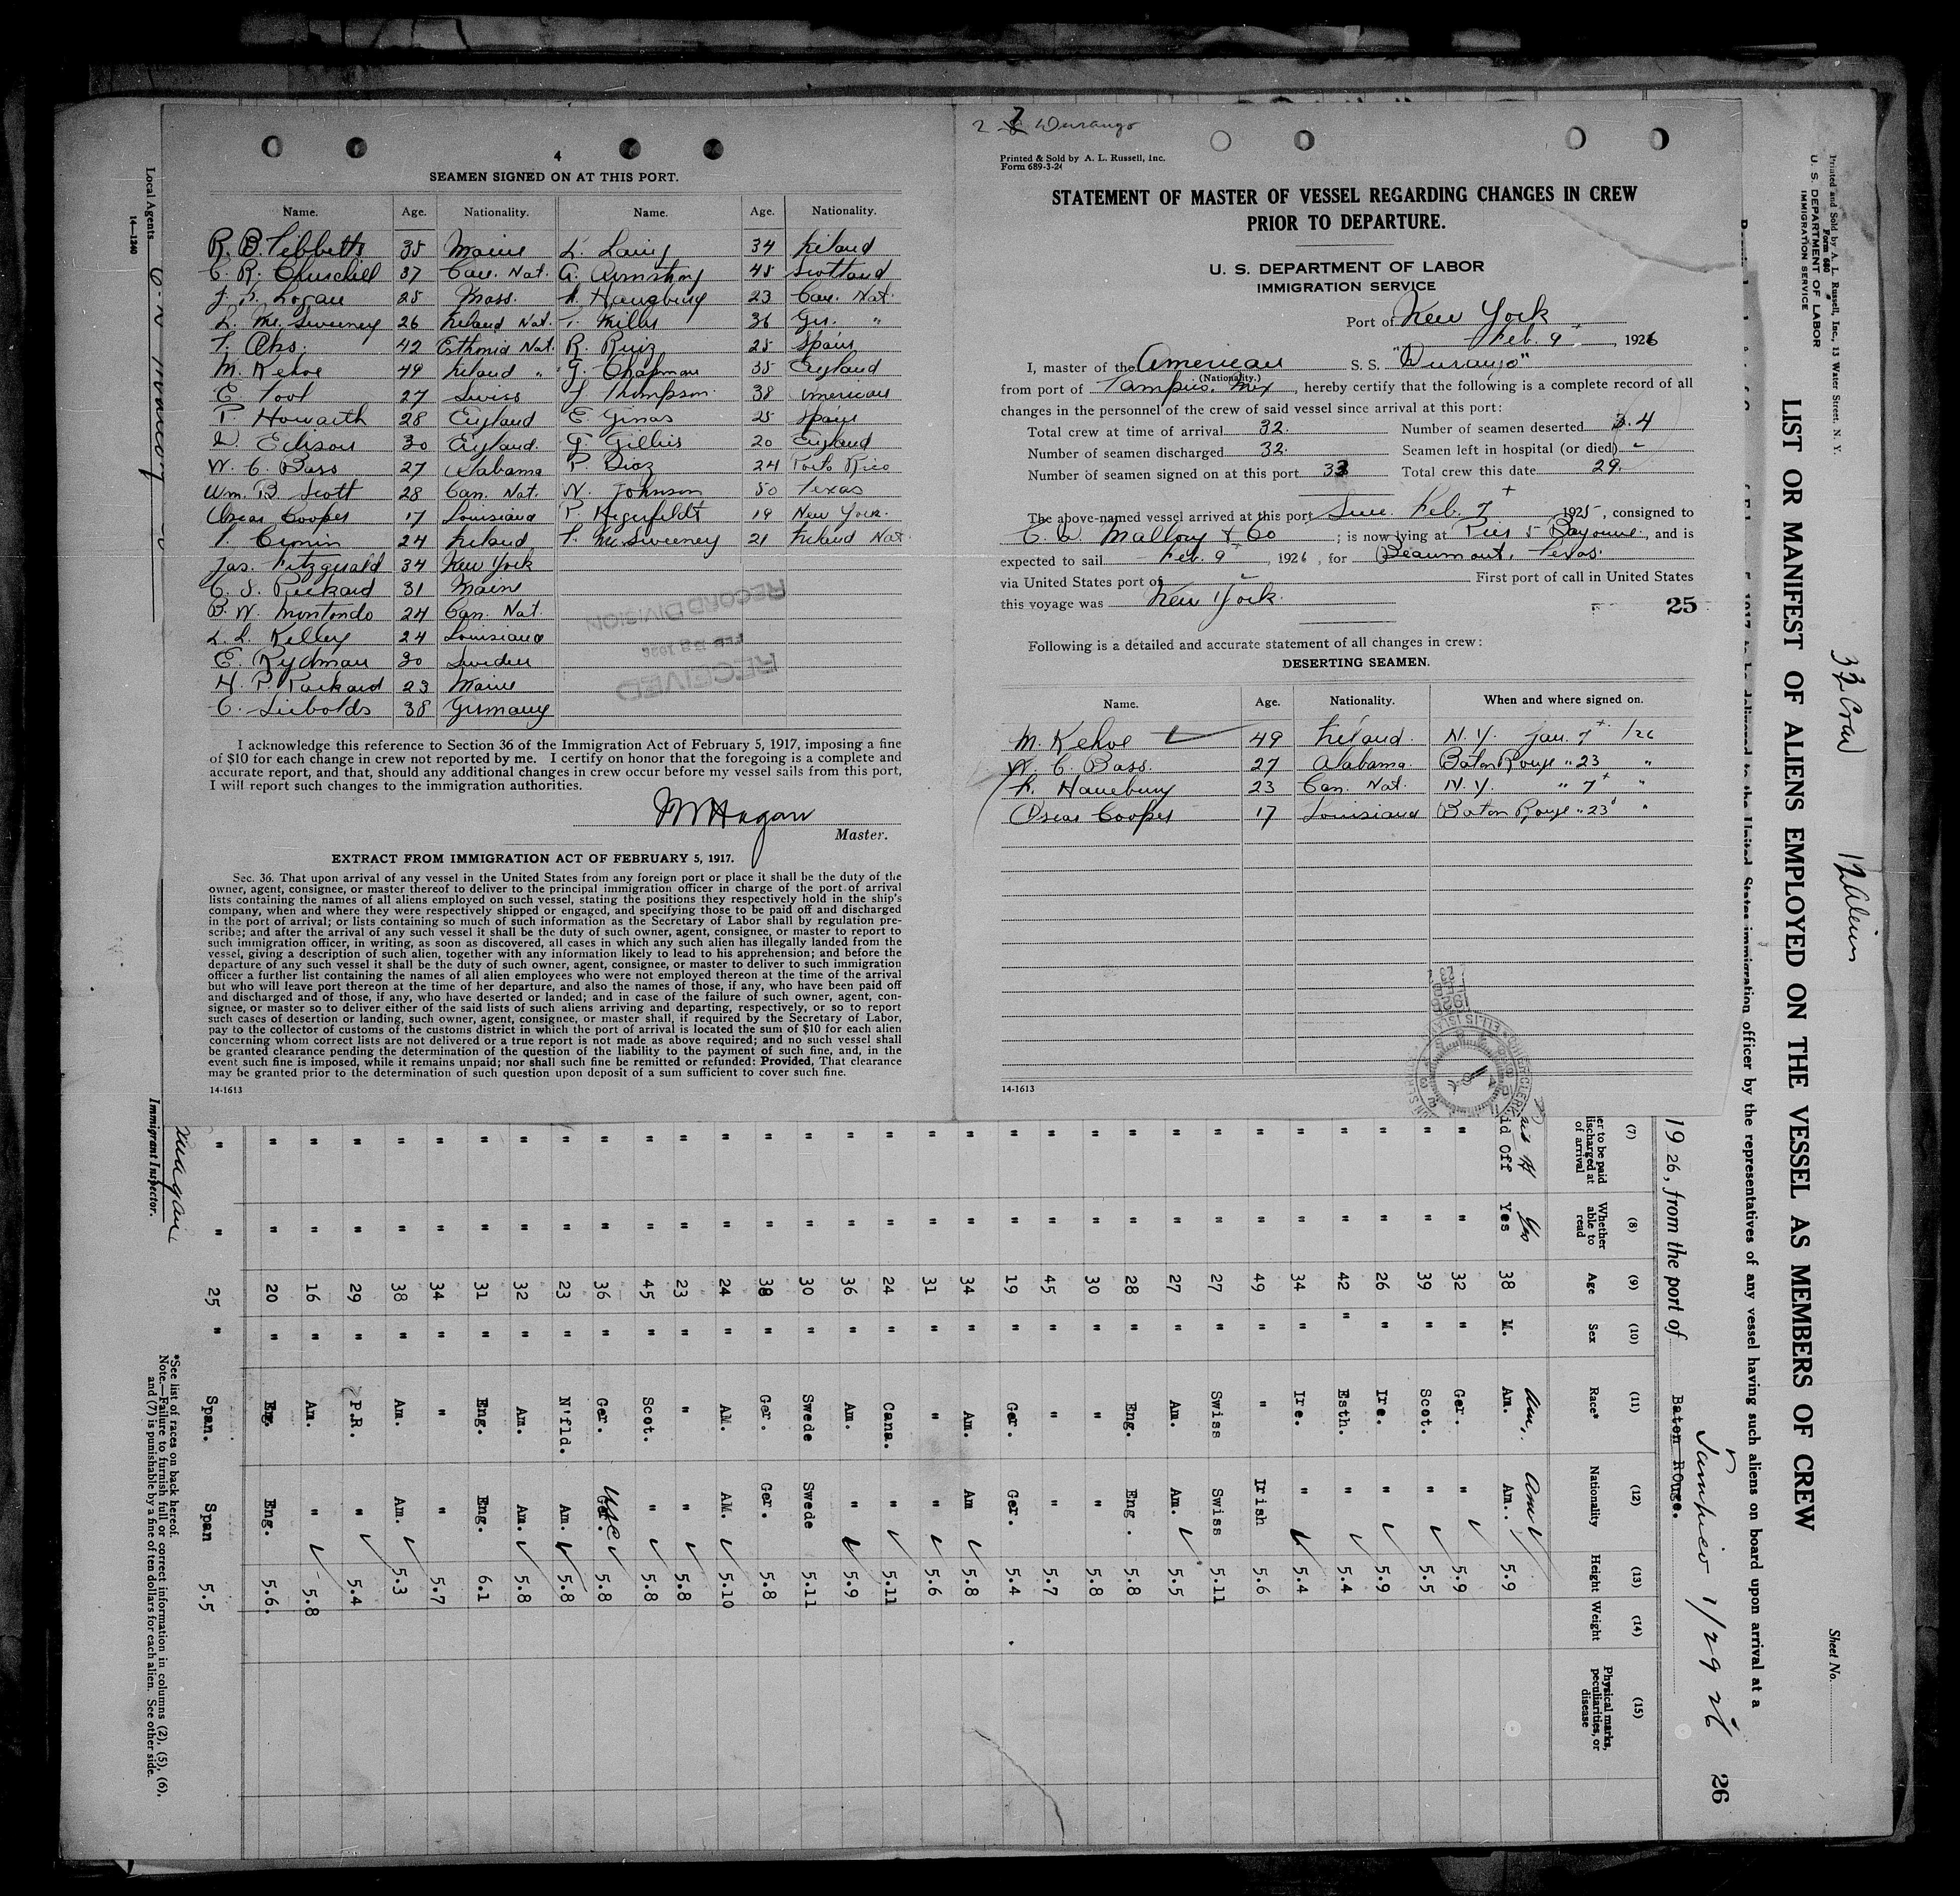 4
SEAMEN SIGNED ON AT THIS PORT.
Name. Age. Nationality. Name. Age. Nationality.
R. B. Tibbetts 35 Maine L. Laing 34 Ireland
C. R. Churchill 37 Can. Nat. A. Armstrong 45 Scotland
J. S. Logan 25 Mass. 23 Can. Nat.
L. McSweeney 26 Ireland Nat. Miller 36 Ger. "
42 Esthonia Nat. R. Ruiz 25 Spain
M. Kehoe 49 Ireland " G. Chapman 35 England
E. Tool 27 Swiss J. Thompson 38 American
T. Howarth 28 England E. Ginas 25 Spain
D. Edison 30 England. G. Gillies 20 England
W. C. Bass 27 Alabama P. Diaz 24 Porto Rico
Wm. B. Scott 28 Can. Nat. W. Johnson 50 Texas
Oscar Cooper 17 Louisiana P. Hegerfeldt 19 New York.
T. Cronin 24 Ireland McSweeney 21 Ireland Nat.
Jas. Fitzgerald 34 New York
31 Maine
B. W. Montondo 24 Can. Nat.
L. L. Kelley 24 Louisiana
E. Rydman 30 Sweden
H. P. Packard 23 Maine
C. Siebolds 38 Germany
RECORD DIVISION
RECEIVED
I acknowledge this reference to Section 36 of the Immigration Act of February 5, 1917, imposing a fine
of $10 for each change in crew not reported by me. I certify on honor that the foregoing is a complete and
accurate report, and that, should any additional changes in crew occur before my vessel sails from this port,
I will report such changes to the immigration authorities.
Hagan
Master.
EXTRACT FROM IMMIGRATION ACT OF FEBRUARY 5, 1917.
Sec. 36. That upon arrival of any vessel in the United States from any foreign port or place it shall be the duty of the
owner, agent, consignee, or master thereof to deliver to the principal immigration officer in charge of the port of arrival
lists containing the names of all aliens employed on such vessel, stating the positions they respectively hold in the ship's
company, when and where they were respectively shipped or engaged, and specifying those to be paid off and discharged
in the port of arrival; or lists containing so much of such information as the Secretary of Labor shall by regulation pre-
scribe; and after the arrival of any such vessel it shall be the duty of such owner, agent, consignee, or master to report to
such immigration officer, in writing, as soon as discovered, all cases in which any such alien has illegally landed from the
vessel, giving a description of such alien, together with any information likely to lead to his apprehension; and before the
departure of any such vessel it shall be the duty of such owner, agent, consignee, or master to deliver to such immigration
officer a further list containing the names of all alien employees who were not employed thereon at the time of the arrival
but who will leave port thereon at the time of her departure, and also the names of those, if any, who have been paid off
and discharged and of those, if any, who have deserted or landed; and in case of the failure of such owner, agent, con-
signee, or master so to deliver either of the said lists of such aliens arriving and departing, respectively, or so to report
such cases of desertion or landing, such owner, agent, consignee, or master shall, if required by the Secretary of Labor,
pay to the collector of customs of the customs district in which the port of arrival is located the sum of $10 for each alien
concerning whom correct lists are not delivered or a true report is not made as above required; and no such vessel shall
be granted clearance pending the determination of the question of the liability to the payment of such fine, and, in the
event such fine is imposed, while it remains unpaid; nor shall such fine be remitted or refunded: Provided, That clearance
may be granted prior to the determination of such question upon deposit of a sum sufficient to cover such fine.
14-1613
2 7 Durango
Printed & Sold by A. L. Russell, Inc.
Form 689-3-24
STATEMENT OF MASTER OF VESSEL REGARDING CHANGES IN CREW
PRIOR TO DEPARTURE.
U. S. DEPARTMENT OF LABOR
IMMIGRATION SERVICE
Port of New York
Feb. 9", 1926
I, master of the American S. S. "Durango"
(Nationality.)
from port of Tampico, Mex, hereby certify that the following is a complete record of all
changes in the personnel of the crew of said vessel since arrival at this port:
Total crew at time of arrival 32. Number of seamen deserted 4
Number of seamen discharged 32. Seamen left in hospital (or died) -
Number of seamen signed on at this port 33 Total crew this date 29.
The above-named vessel arrived at this port Feb. 7 1925, consigned to
C. D. Mallory & Co; is now lying at Pier 5 Bayonne, and is
expected to sail Feb. 9, 1926, for Beaumont, Texas.
via United States port of - First port of call in United States
this voyage was New York.
25
Following is a detailed and accurate statement of all changes in crew:
DESERTING SEAMEN.
Name. Age. Nationality. When and where signed on.
M. Kehoe 49 Ireland. N. Y. Jan. 7 /26
W. C. Bass. 27 Alabama. Baton Rouge " 23 "
Hanebury 23 Can. Nat. N. Y. " 7 "
Oscar Cooper 17 Louisiana Baton Rouge " 23 "
14-1613
Printed and Sold by A. L. Russell, Inc., 13 Water Street, N. Y.
Form 680
U. S. DEPARTMENT OF LABOR
IMMIGRATION SERVICE
32 Crew 12 Aliens
Sheet No.
LIST OR MANIFEST OF ALIENS EMPLOYED ON THE VESSEL AS MEMBERS OF CREW
United States immigration officer by the representatives of any vessel having such aliens on board upon arrival at a
1926, from the port of Baton Rouge. Tampico 1/29 26
26
(7) (8) (9) (10) (11) (12) (13) (14) (15)
er to be paid
ischarged at
of arrival
Whether able to read
Age
Sex
Race*
Nationality
Height
Weight
Physical marks, peculiarities, or disease
Yes Am. Am
id Off Yes 38 M. Am. Am. 5.9
" " 32 " Ger. " 5.9
" " 39 " Scot. " 5.5
" " 26 " Ire. " 5.9
" " 42 " Esth. " 5.4
" " 34 " Ire. " 5.4
" " 49 " " Irish 5.6
" " 27 " Swiss Swiss 5.11
" " 27 " Am. Am. 5.5
" " 28 " Eng. Eng. 5.8
" " 30 " " " 5.8
" " 45 " " " 5.7
" " 19 " Ger. Ger. 5.4
" " 34 " Am. Am 5.8
" " 31 " " " 5.6
" " 24 " Cana. " 5.11
" " 36 " Am. " 5.9
" " 30 " Swede Swede 5.11
" " 38 " Ger. Ger. 5.8
" " 24 " AM. AM. 5.10
" " 23 " " " 5.8
" " 45 " Scot. " 5.8
" " 36 " Ger. USC 5.8
" " 23 " N'fld. Am. 5.8
" " 32 " Am. Am. 5.8
" " 31 " Eng. Eng. 6.1
" " 34 " " " 5.7
" " 38 " Am. Am. 5.3
" " 29 " P.R. " 5.4
" " 16 " Am. " 5.8
" " 20 " Eng. Eng. 5.6.
" " 25 " Span. Span 5.5
Local Agents
14-1240
Immigrant Inspector.
*See list of races on back hereof.
Note.—Failure to furnish full or correct information in columns (2), (5), (6),
and (7) is punishable by a fine of ten dollars for each alien. See other side.